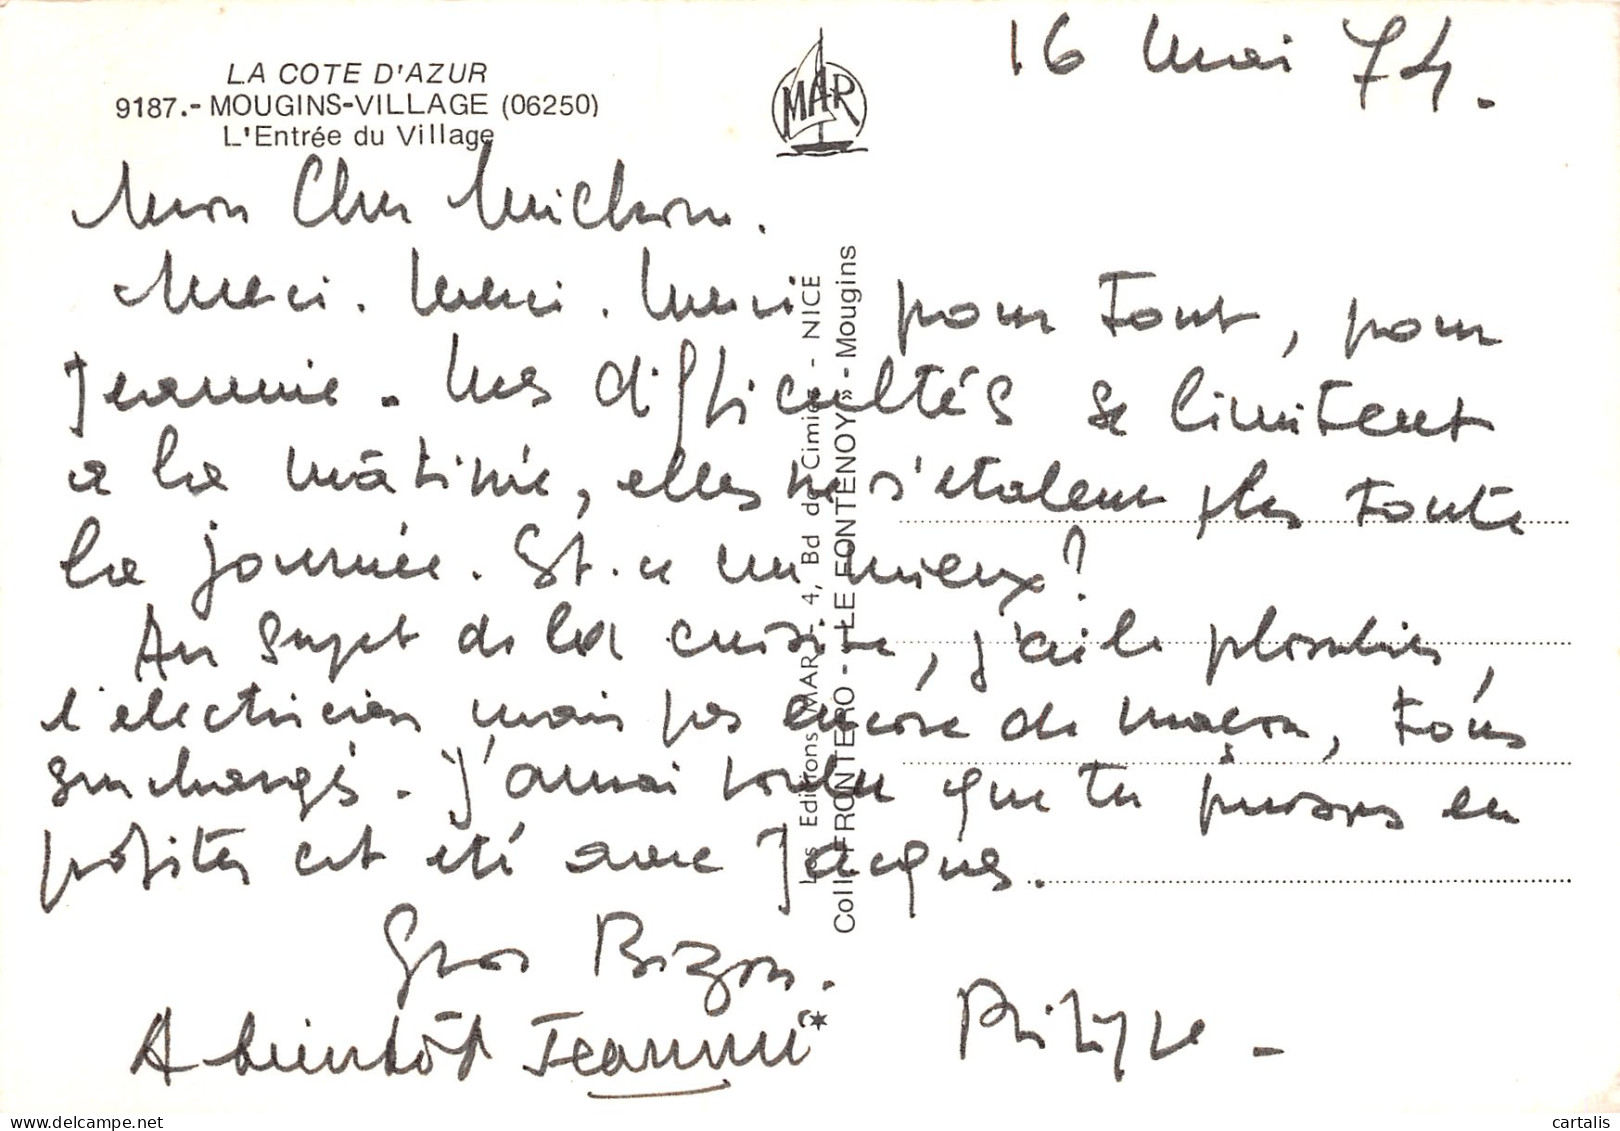 LA COTE D'AZUR
9187.- MOUGINS-VILLAGE (06250)
L'Entrée du Village
MAR
16 Mai 74.
Mon Cher Michou.
Merci. Merci. Merci pour Tout, pour
Jeannie. Mes difficultés se limitent
a la mâtinée, elles ne s'etalent plus Toute
la journée. Est-ce un mieux?
Au sujet de la cuisine, j'ai le plombier,
l'electricien mais pas encore de maçon, Tous
surchargés. J'aurai voulu que tu puisses en
profiter cet été avec Jacques.
Gros Bizou.
A bientôt Jeannie
Philippe -
Les Editions MAR - 4, Bd de Cimiez - NICE
Coll. FRONTERO - «LE FONTENOY» - Mougins
cartalis